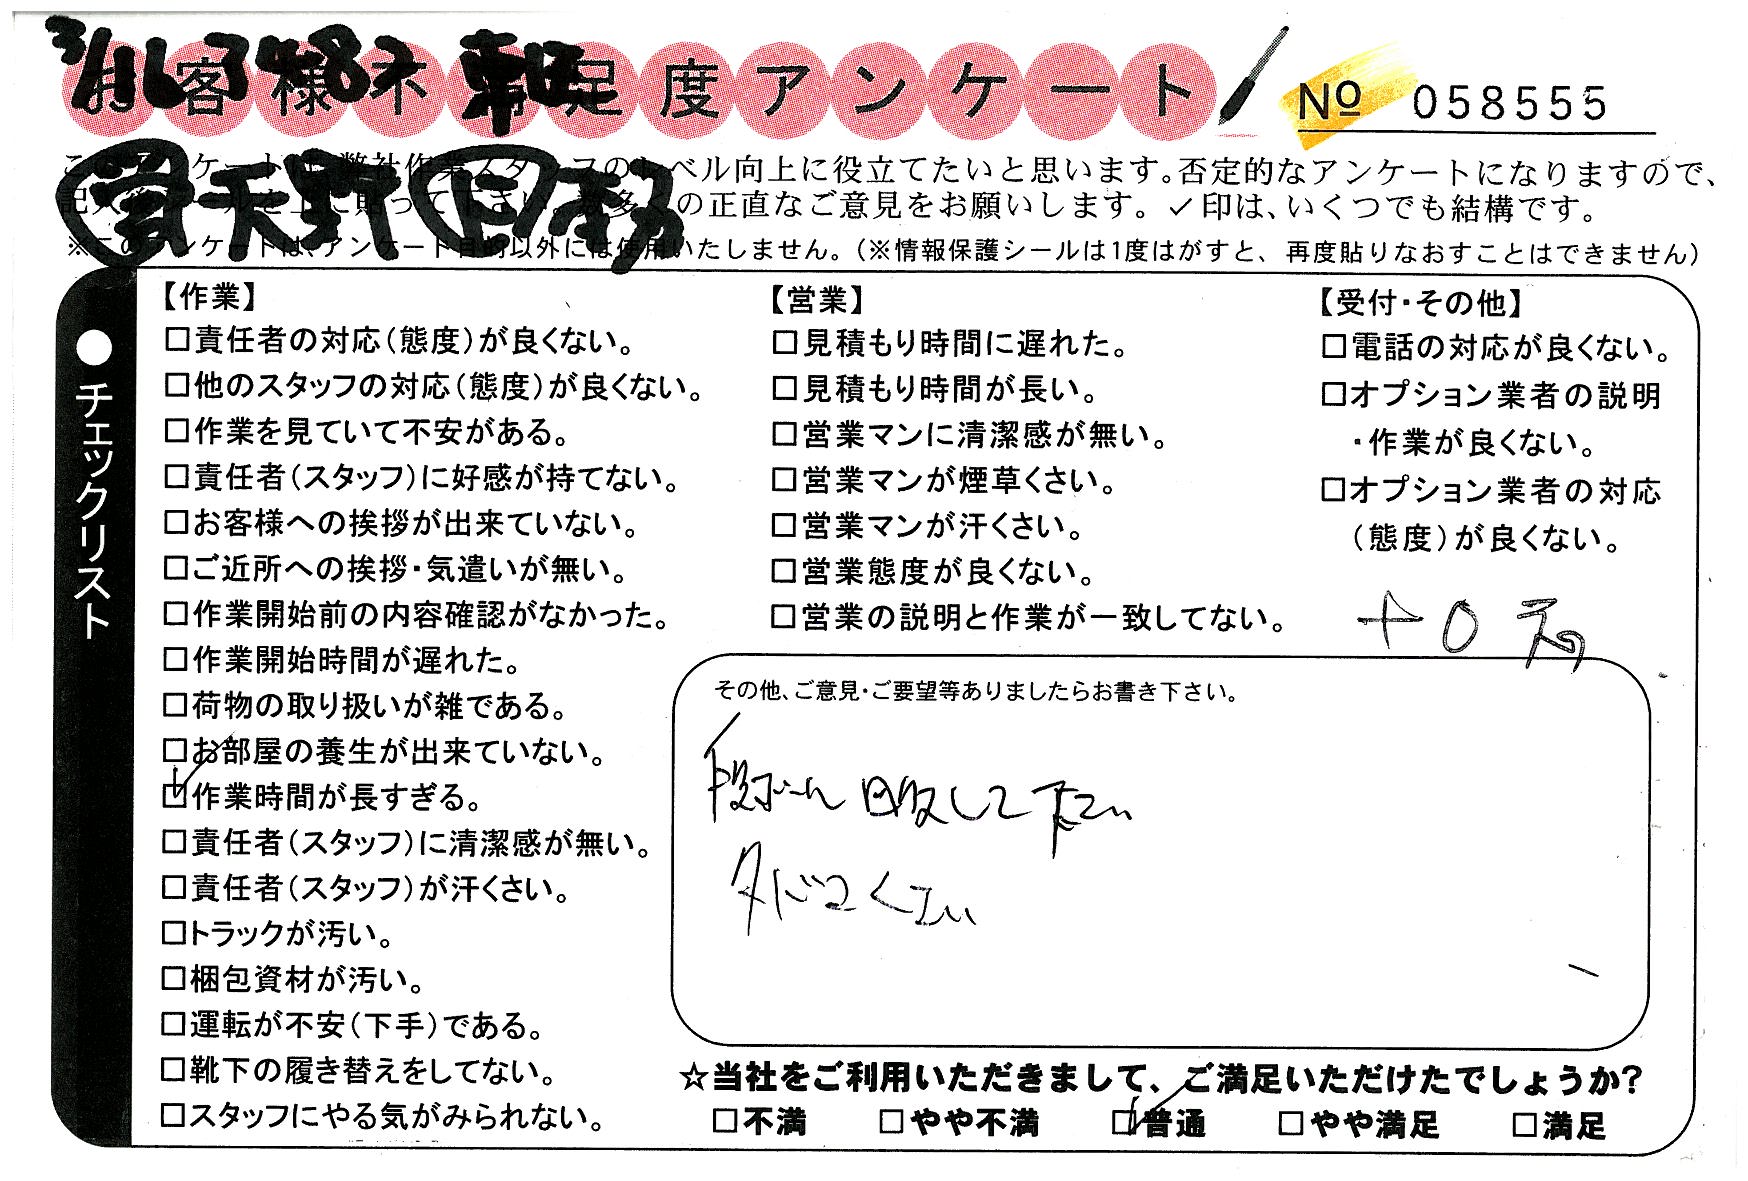 お客様不満足度アンケート
№ 058555
このアンケートは、弊社作業スタッフのレベル向上に役立てたいと思います。否定的なアンケートになりますので、
記入後シールを上に貼って下さい。数多くの正直なご意見をお願いします。✓印は、いくつでも結構です。
※このアンケートは、アンケート目的以外には使用いたしません。(※情報保護シールは1度はがすと、再度貼りなおすことはできません)
●チェックリスト
【作業】
□責任者の対応(態度)が良くない。
□他のスタッフの対応(態度)が良くない。
□作業を見ていて不安がある。
□責任者(スタッフ)に好感が持てない。
□お客様への挨拶が出来ていない。
□ご近所への挨拶・気遣いが無い。
□作業開始前の内容確認がなかった。
□作業開始時間が遅れた。
□荷物の取り扱いが雑である。
□お部屋の養生が出来ていない。
□作業時間が長すぎる。
□責任者(スタッフ)に清潔感が無い。
□責任者(スタッフ)が汗くさい。
□トラックが汚い。
□梱包資材が汚い。
□運転が不安(下手)である。
□靴下の履き替えをしてない。
□スタッフにやる気がみられない。
【営業】
□見積もり時間に遅れた。
□見積もり時間が長い。
□営業マンに清潔感が無い。
□営業マンが煙草くさい。
□営業マンが汗くさい。
□営業態度が良くない。
□営業の説明と作業が一致してない。
【受付・その他】
□電話の対応が良くない。
□オプション業者の説明
・作業が良くない。
□オプション業者の対応
(態度)が良くない。
その他、ご意見・ご要望等ありましたらお書き下さい。
段ボール 回収して下さい
タバコくさい
☆当社をご利用いただきまして、ご満足いただけたでしょうか?
□不満 □やや不満 □普通 □やや満足 □満足